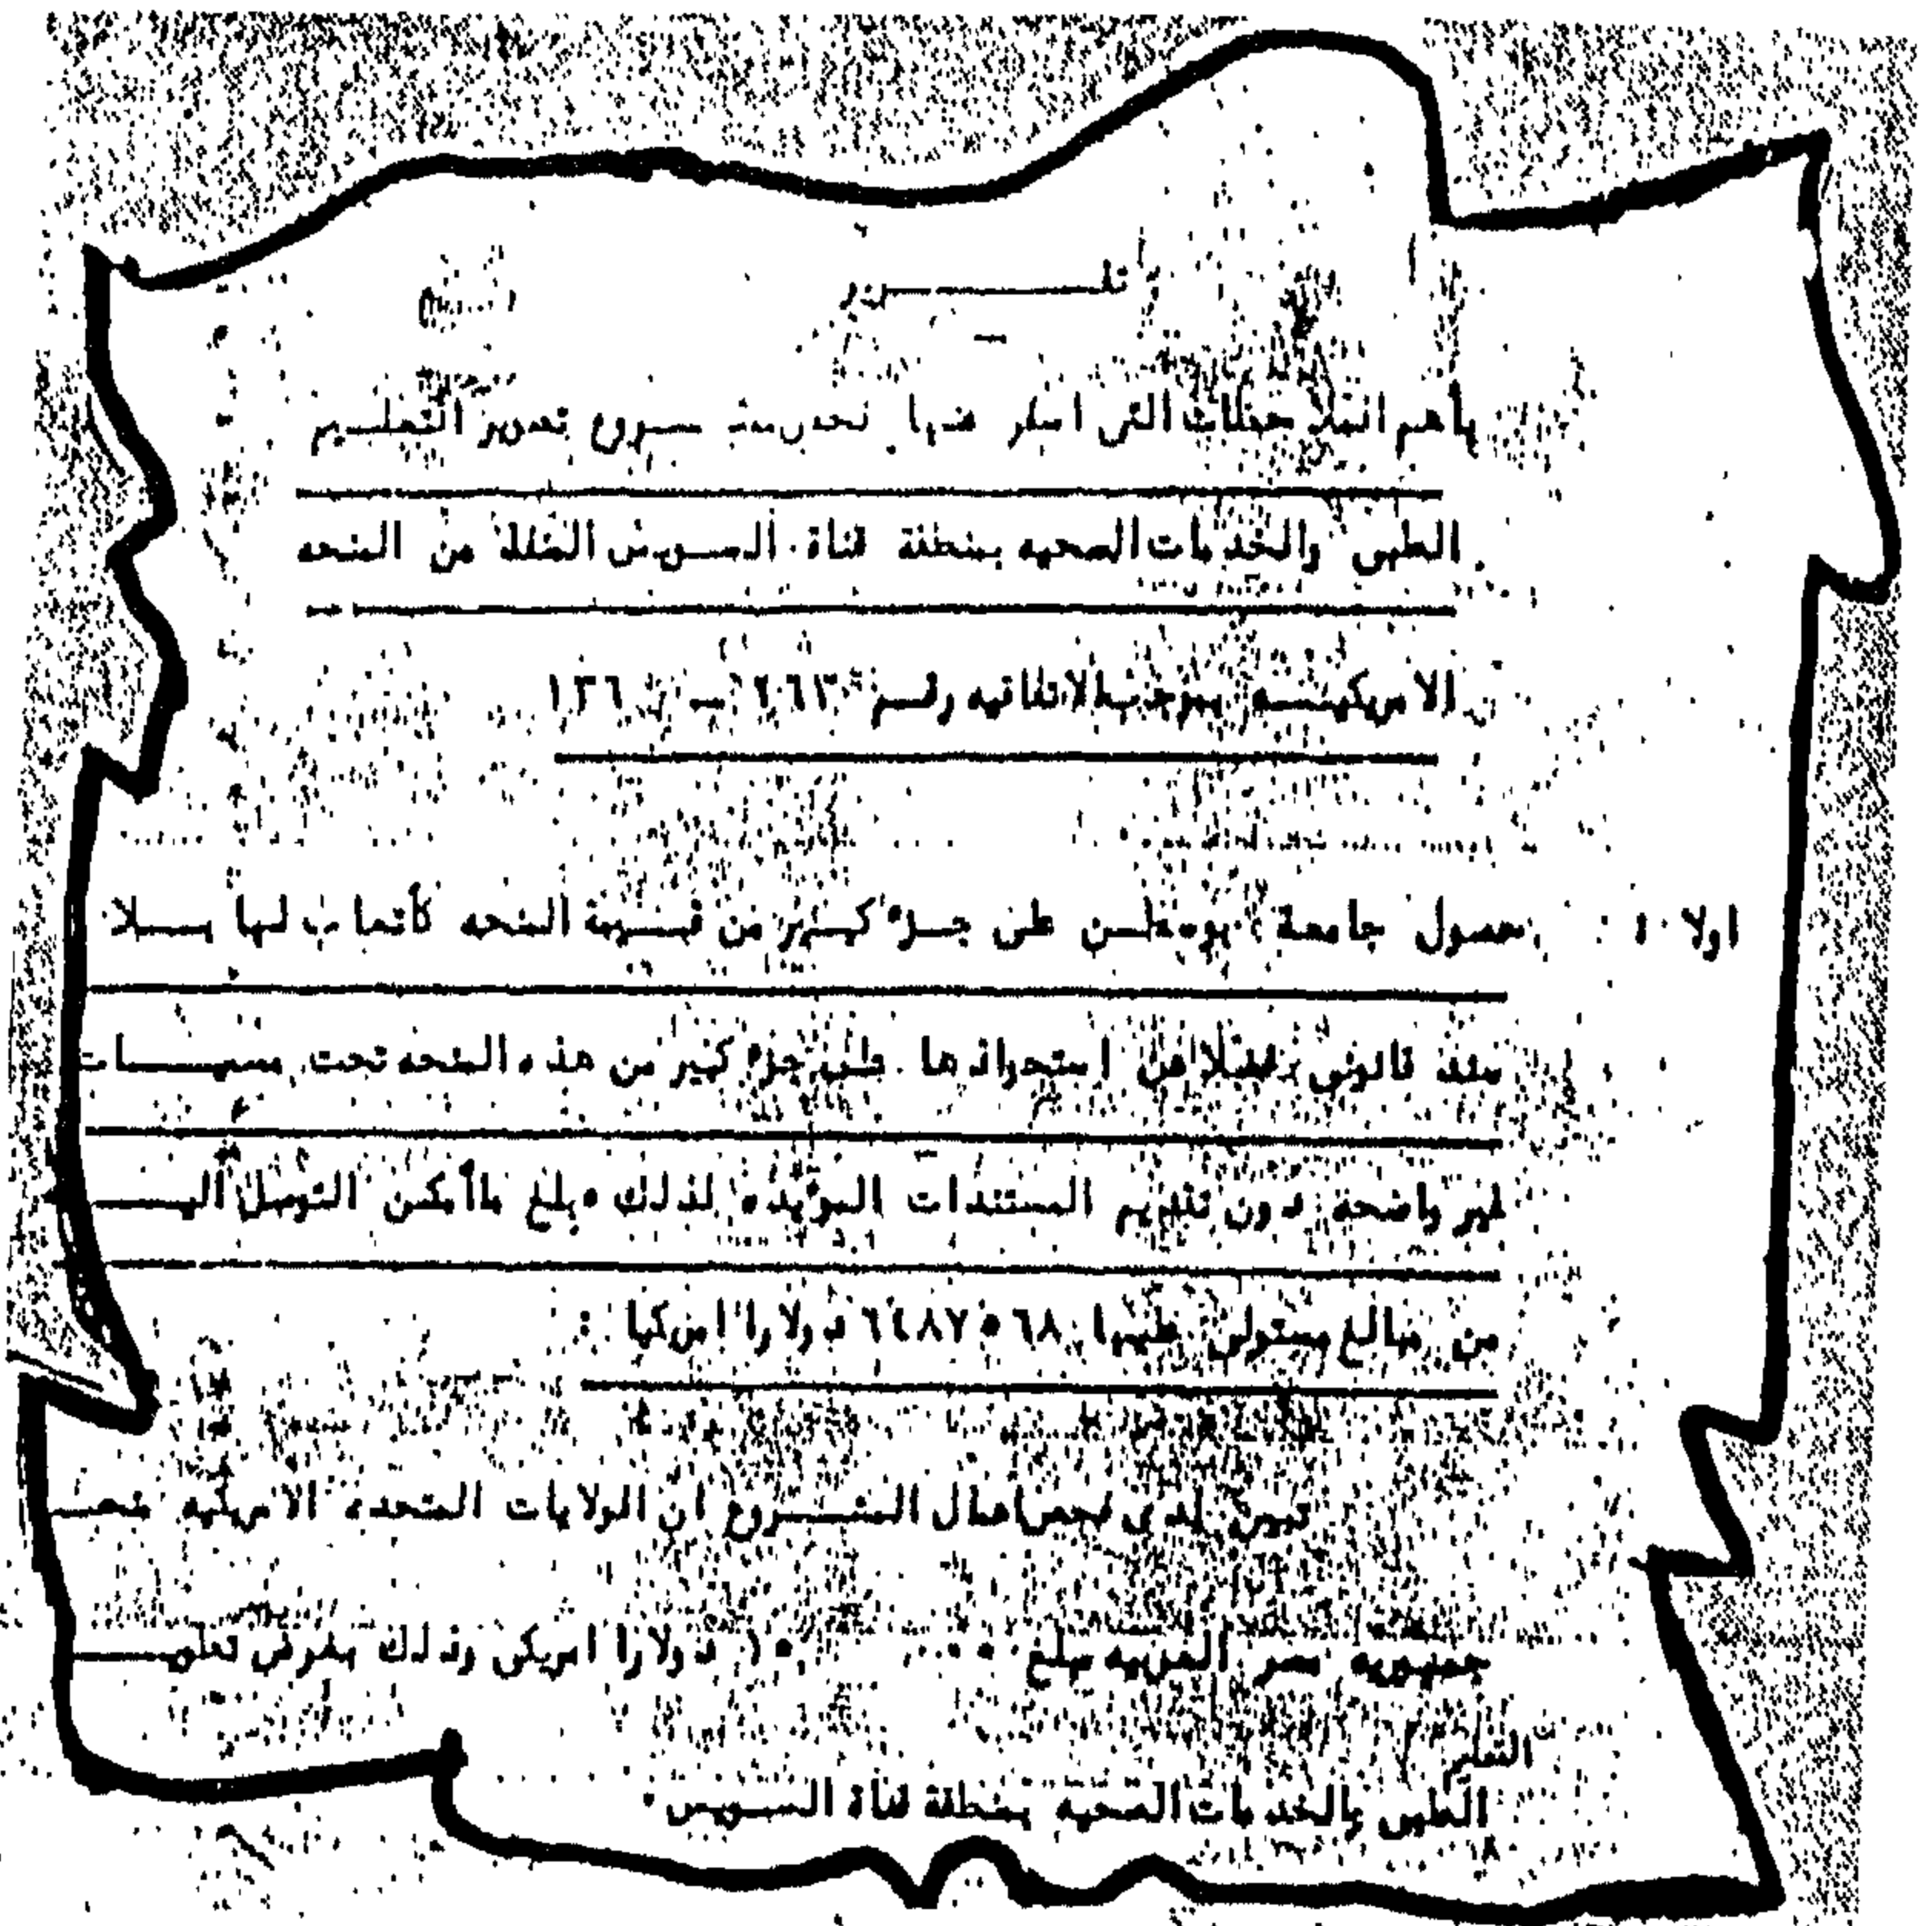 تقـــــرير
بأهم الملاحظات التى اسفر عنها فحص مشروع تطوير التعليم
الطبى والخدمات الصحيه بمنطقة قناة السويس الممولة من المنحه
الامريكيـــه بموجب الاتفاقيه رقم ٢٦٣ -
اولا : حصول جامعة بوسطن على جزء كبير من قيمة المنحه كأتعاب لها بــلا
سند قانونى فضلا عن استحواذها على جزء كبير من هذه المنحه تحت مسميـــات
غير واضحه دون تقديم المستندات المؤيده لذلك وبلغ ماأمكن التوصل اليـــه
من مبالغ مستولى عليها ٦٤٨٧٥٦٨ دولارا امريكيا :
تبين لدى فحص اعمال المشـــروع ان الولايات المتحده الامريكيه منحت
جمهورية مصر العربيه مبلغ دولارا امريكى وذلك بغرض تطويـــر
التعليم
الطبى والخدمات الصحيه بمنطقة قناة الســويس .